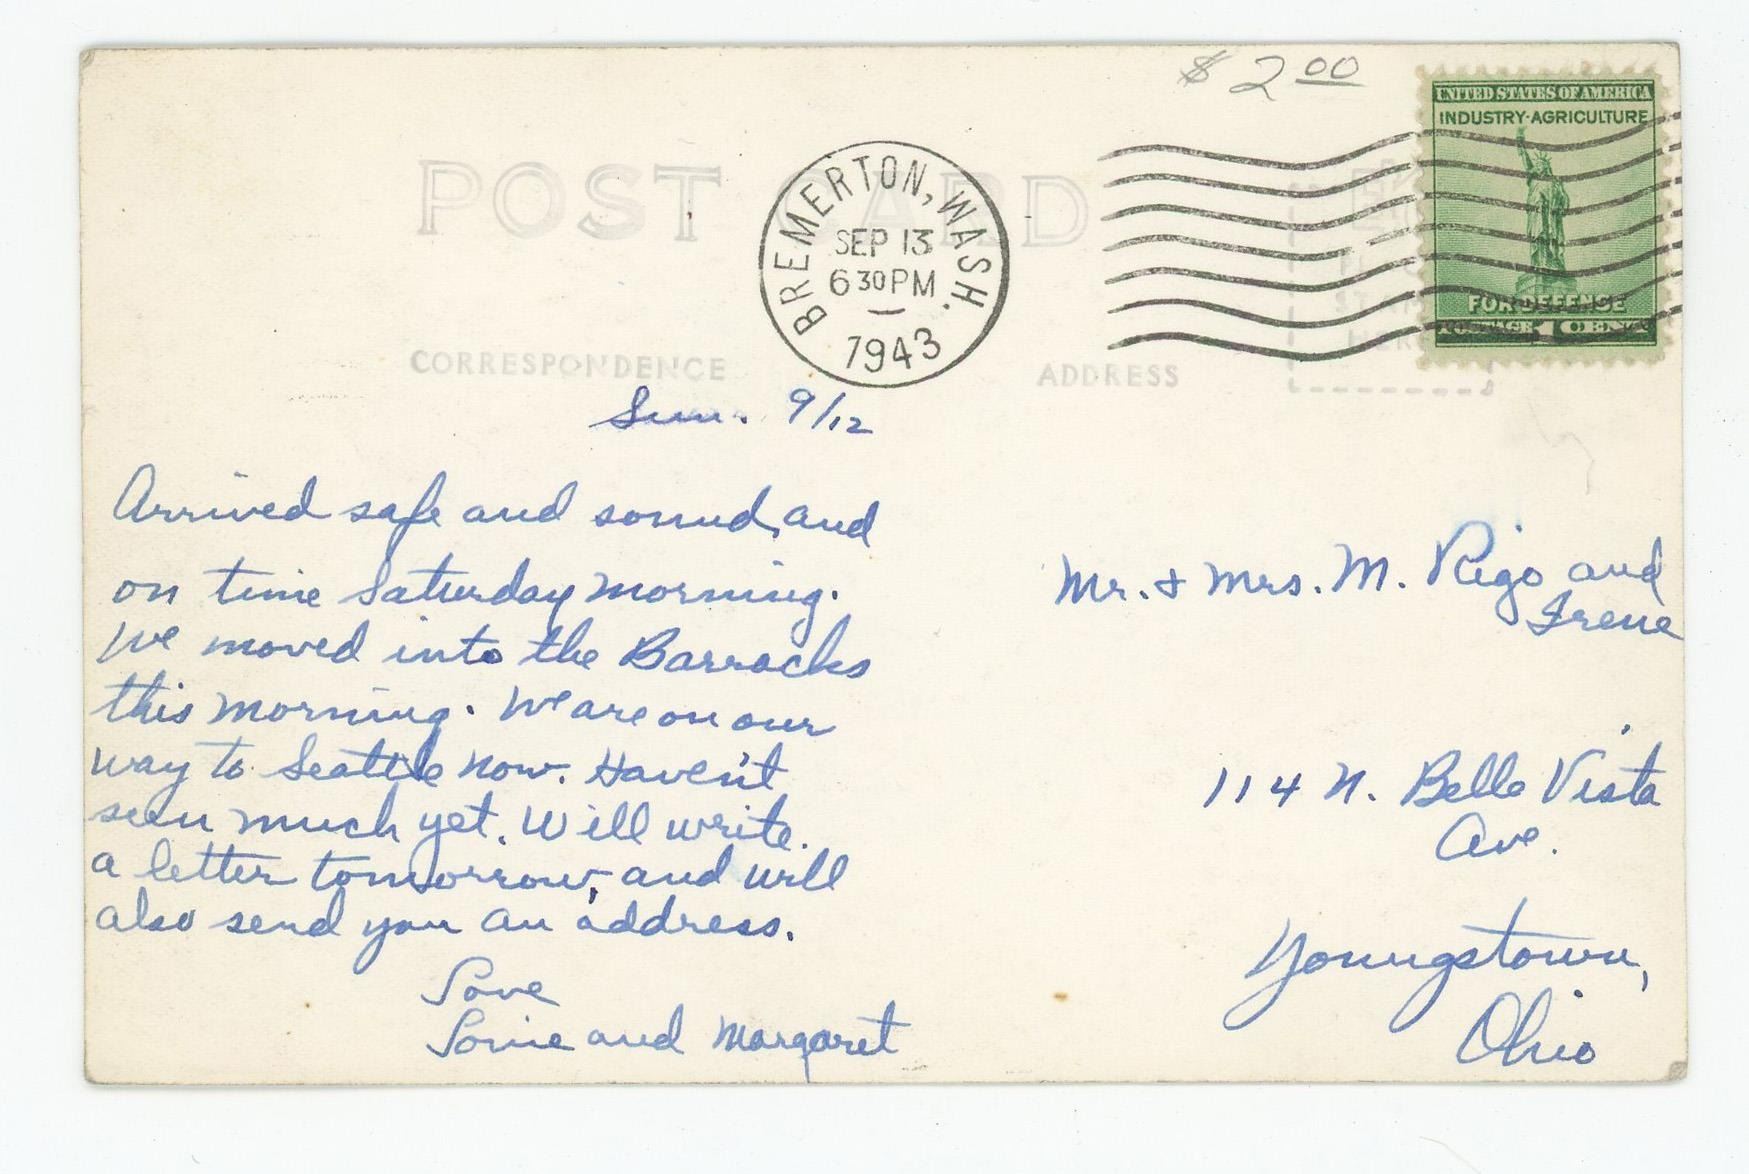 $ 2 00
UNITED STATES OF AMERICA
INDUSTRY-AGRICULTURE
FOR DEFENSE
POSTAGE 1 CENT
POST CARD
BREMERTON, WASH.
SEP 13
6 30 PM
1943
CORRESPONDENCE
ADDRESS
Sun. 9/12
Arrived safe and sound, and
on time Saturday morning.
We moved into the Barracks
this morning. We are on our
way to Seattle now. Haven't
seen much yet. Will write
a letter tomorrow, and will
also send you an address.
Love
and Margaret
Mr. & Mrs. M. Rigo and
Irene
114 N. Belle Vista
Ave.
Youngstown,
Ohio